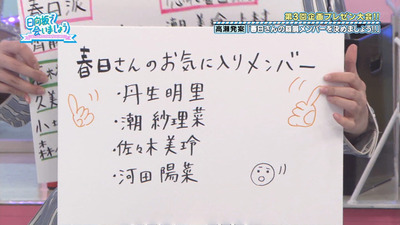 日向坂で会いましょう
第3回企画プレゼン大会!!
高瀬発案
春日さんの贔屓メンバーを決めましょう!
春日派
春日さんのお気に入りメンバー
・丹生明里
・潮 紗理菜
・佐々木美玲
・河田陽菜